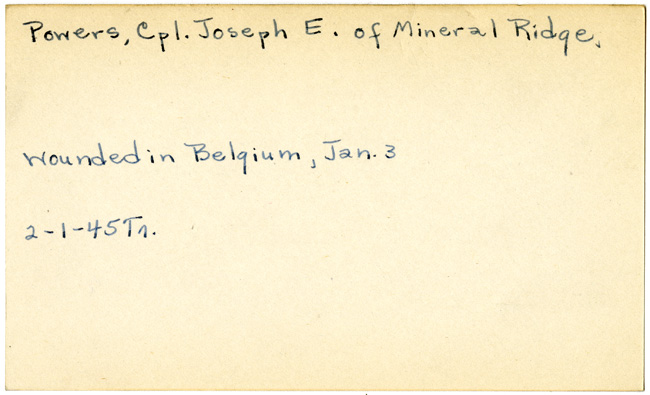 Powers, Cpl. Joseph E. of Mineral Ridge.
Wounded in Belgium, Jan. 3
2-1-45 Tr.